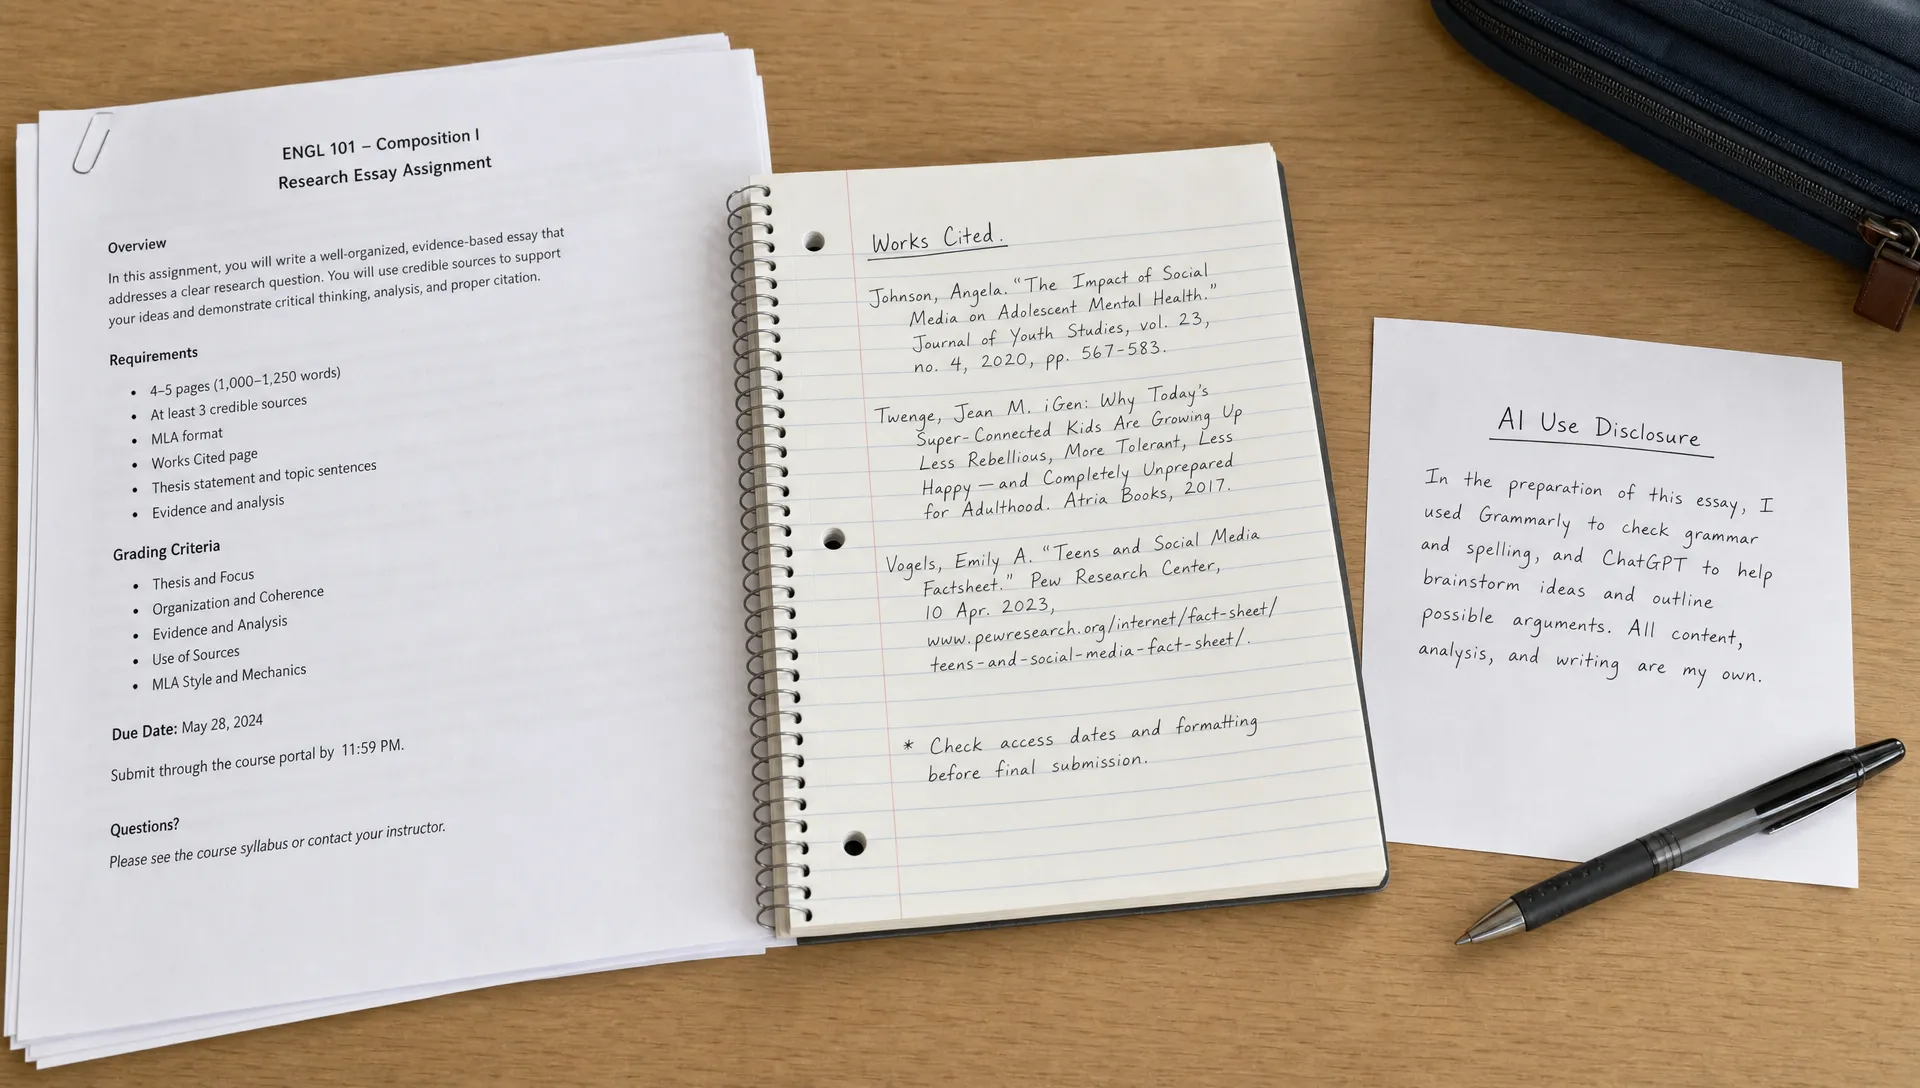 ENGL 101 – Composition I
Research Essay Assignment
Overview
In this assignment, you will write a well-organized, evidence-based essay that
addresses a clear research question. You will use credible sources to support
your ideas and demonstrate critical thinking, analysis, and proper citation.
Requirements
• 4–5 pages (1,000–1,250 words)
• At least 3 credible sources
• MLA format
• Works Cited page
• Thesis statement and topic sentences
• Evidence and analysis
Grading Criteria
• Thesis and Focus
• Organization and Coherence
• Evidence and Analysis
• Use of Sources
• MLA Style and Mechanics
Due Date: May 28, 2024
Submit through the course portal by 11:59 PM.
Questions?
Please see the course syllabus or contact your instructor.
Works Cited.
Johnson, Angela. “The Impact of Social
Media on Adolescent Mental Health.”
Journal of Youth Studies, vol. 23,
no. 4, 2020, pp. 567–583.
Twenge, Jean M. iGen: Why Today's
Super-Connected Kids Are Growing Up
Less Rebellious, More Tolerant, Less
Happy — and Completely Unprepared
for Adulthood. Atria Books, 2017.
Vogels, Emily A. “Teens and Social Media
Factsheet.” Pew Research Center,
10 Apr. 2023,
www.pewresearch.org/internet/fact-sheet/
teens-and-social-media-fact-sheet/.
* Check access dates and formatting
before final submission.
AI Use Disclosure
In the preparation of this essay, I
used Grammarly to check grammar
and spelling, and ChatGPT to help
brainstorm ideas and outline
possible arguments. All content,
analysis, and writing are my own.